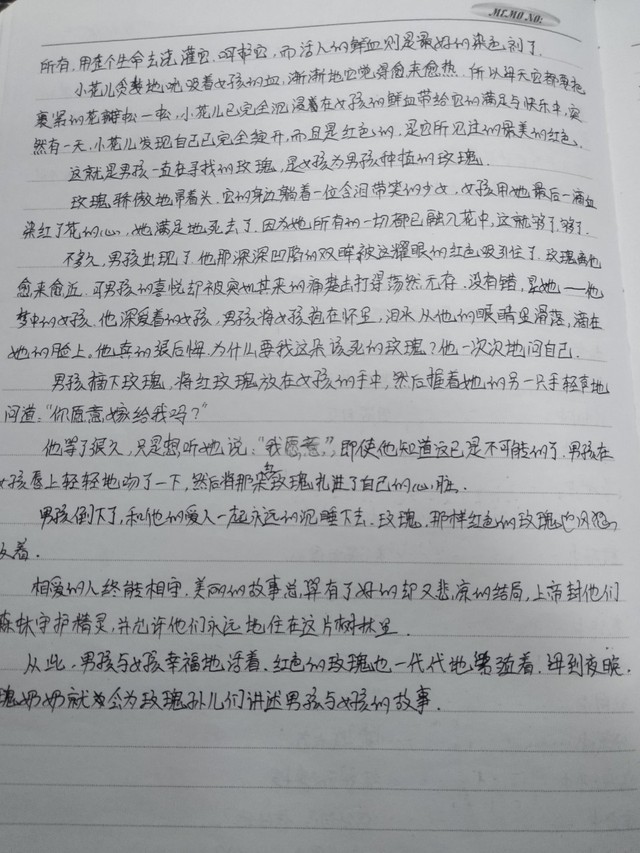 MEMO NO:
所有,用整个生命去浇灌它、呵护它,而活人的鲜血则是最好的染色剂了.
小花儿贪婪地吮吸着女孩的血,渐渐地它觉得愈来愈热.所以每天它都要把
裹紧的花瓣松一松,小花儿已完全沉浸着在女孩的鲜血带给它的满足与快乐中,突
然有一天,小花儿发现自己已完全绽开,而且是红色的,是它所见过的最美的红色.
这就是男孩一直在寻找的玫瑰,是女孩为男孩种植的玫瑰.
玫瑰骄傲地昂着头.它的身边躺着一位含泪带笑的少女,女孩用她最后一滴血
染红了花的心,她满足地死去了.因为她所有的一切都已融入花中,这就够了.够了.
不多久,男孩出现了.他那深深凹陷的双眸被这耀眼的红色吸引住了.玫瑰离他
愈来愈近.可男孩的喜悦却被突如其来的痛楚击打得荡然无存.没有错,是她——他
梦中的女孩.他深爱着的女孩,男孩将女孩抱在怀里,泪水从他的眼睛里滑落,滴在
她的脸上.他真的很后悔.为什么要找这朵该死的玫瑰?他一次次地问自己.
男孩摘下玫瑰,将红玫瑰放在女孩的手中,然后握着她的另一只手轻声地
问道:"你愿意嫁给我吗?"
他等了很久,只是想听她说:"我愿意",即使他知道这已是不可能的了.男孩在
女孩唇上轻轻地吻了一下,然后将那朵玫瑰扎进了自己的心脏.
男孩倒下了,和他的爱人一起永远的沉睡下去.玫瑰.那样红色的玫瑰也
着.
相爱的人终能相守.美丽的故事总算有了好的却又悲凉的结局,上帝封他们
守护精灵,并允许他们永远地住在这片树林里.
从此,男孩与女孩幸福地活着.红色的玫瑰也一代代地繁殖着.每到夜晚.
瑰奶奶就会为玫瑰孙儿们讲述男孩与女孩的故事.